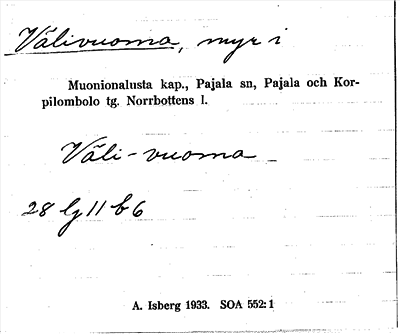 Välivuoma, myr i
Muonionalusta kap., Pajala sn, Pajala och Kor-
pilombolo tg. Norrbottens l.
Väli-vuoma
28 lg 11 b 6
A. Isberg 1933. SOA 552:1